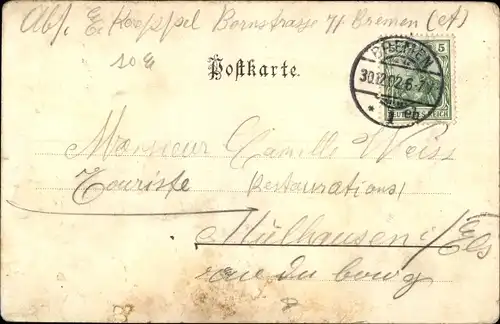 Abs. E. Koeppel Bornstrasse 71 Bremen (A)
10 E
Postkarte.
BREMEN
30.12.02.6-7N
* 1 eb
5
DEUTSCHES REICH
Monsieur Camille Weiss
Touriste Restaurations
Mülhausen i/Els
rue du bourg
8